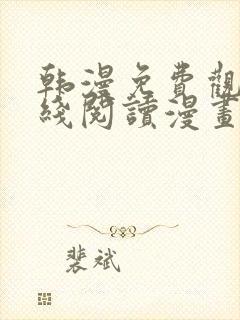 韩漫免費觀
綫閱讀漫畫
裴斌